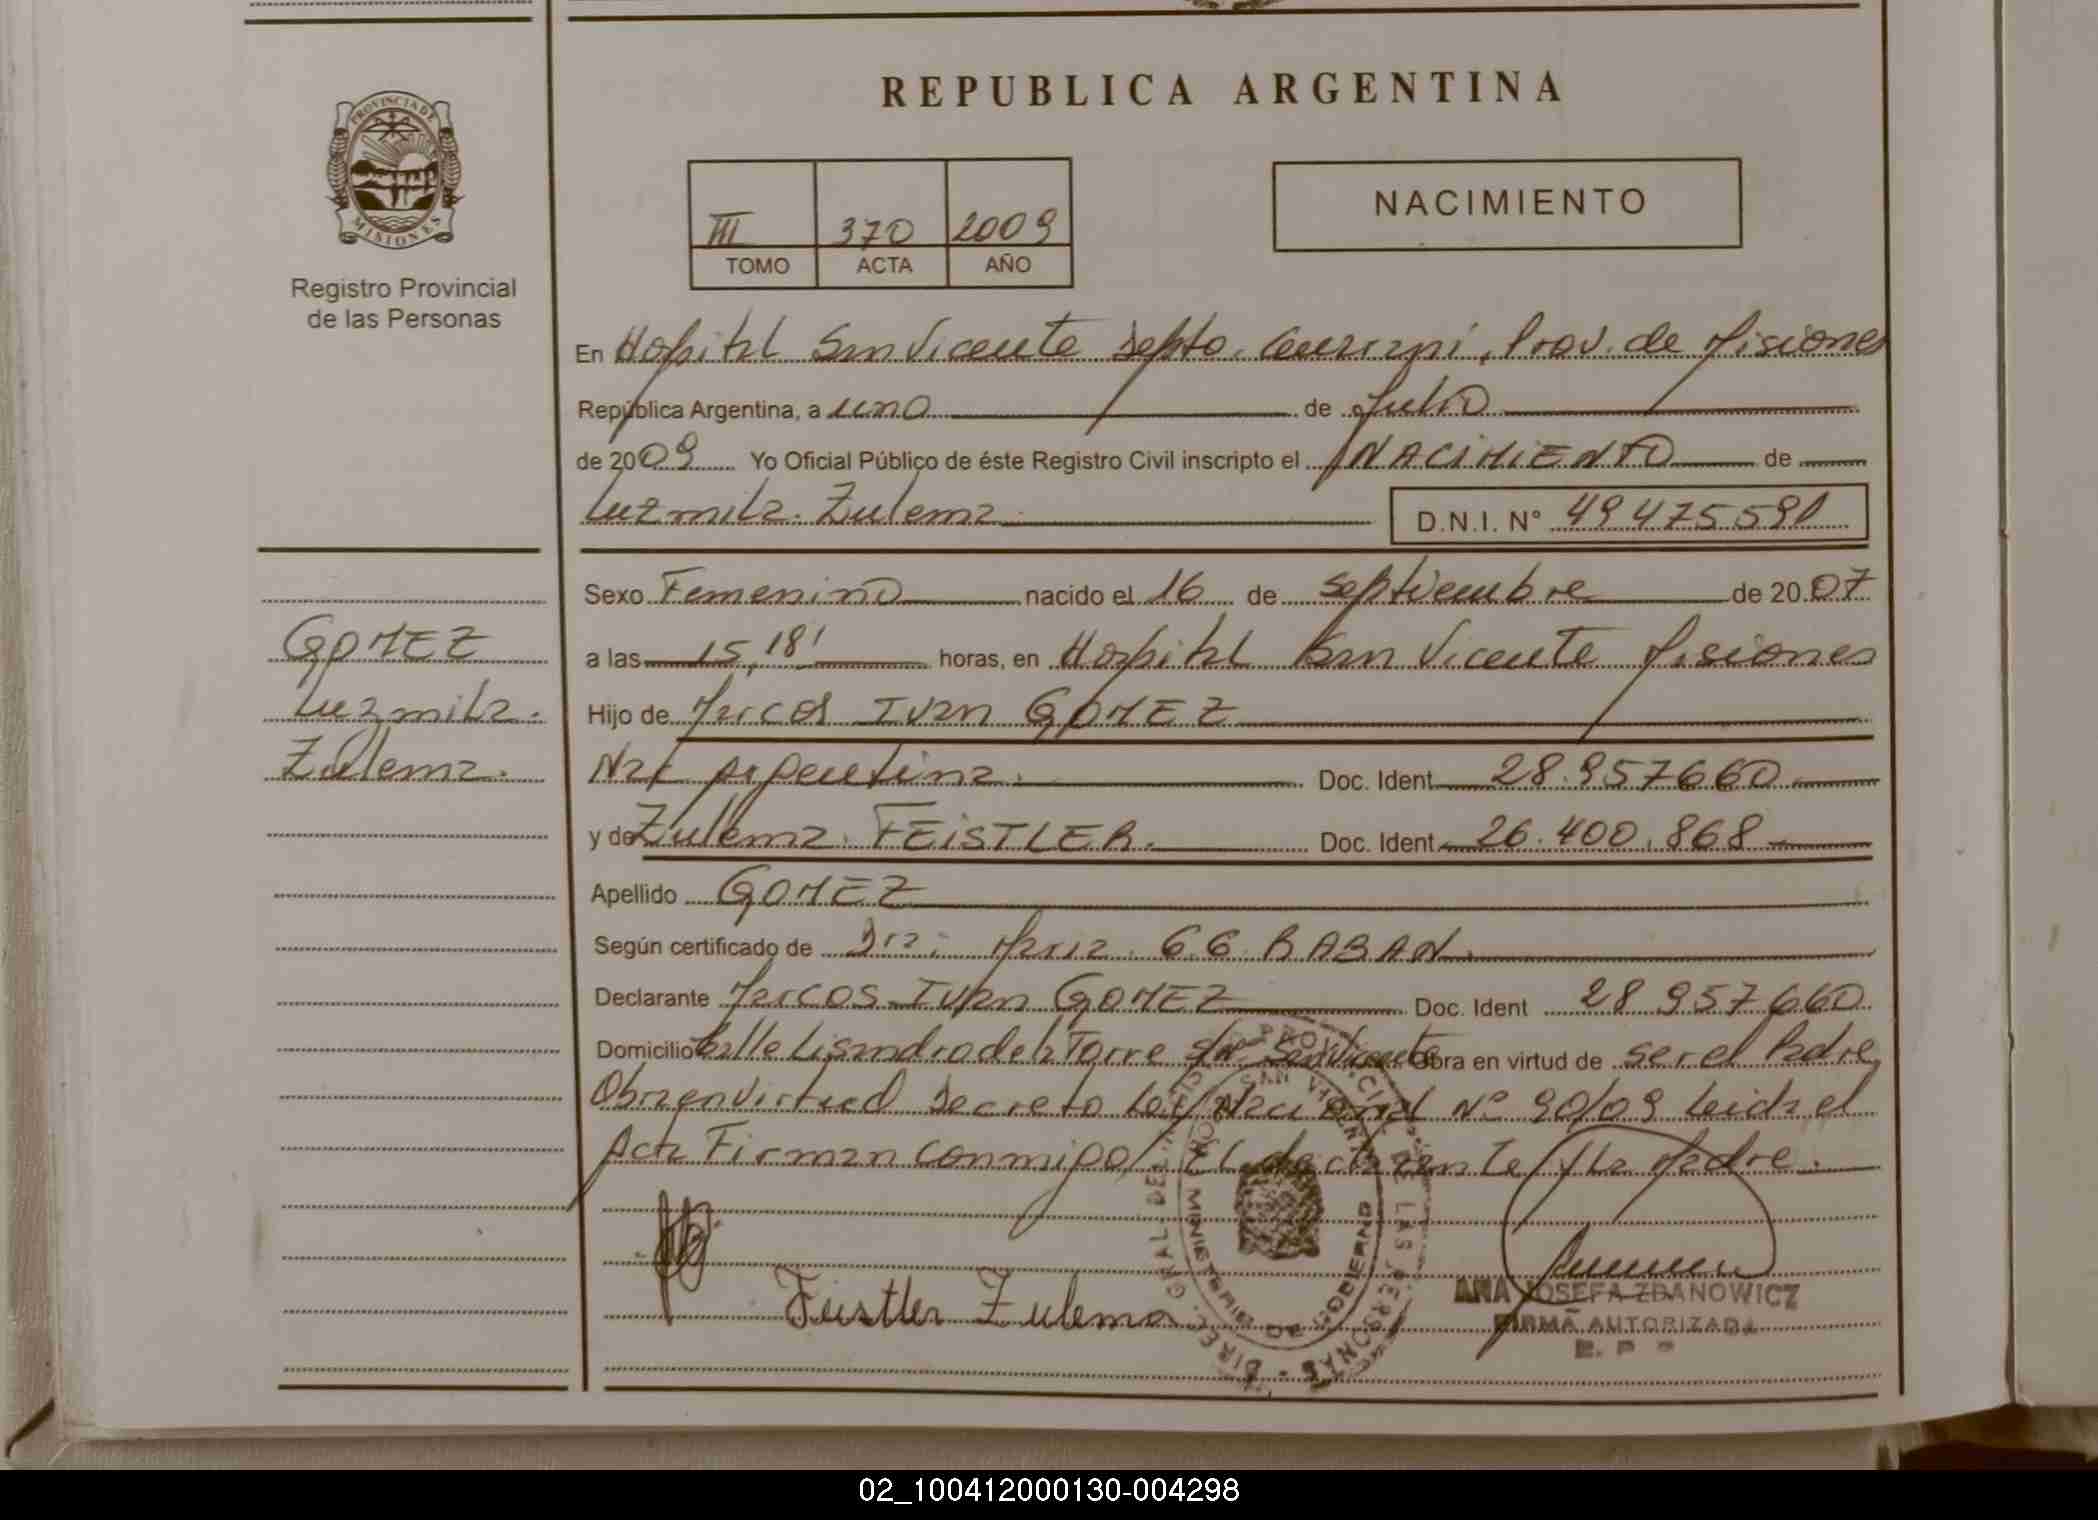 REPUBLICA ARGENTINA
PROVINCIA DE
MISIONES
Registro Provincial
de las Personas
NACIMIENTO
III 370 2009
TOMO ACTA AÑO
En Hospital San Vicente Depto. Guarani, Prov. de Misiones
República Argentina, a uno de Julio
de 2009 Yo Oficial Público de éste Registro Civil inscripto el NACIMIENTO de
Luzmila Zulema D.N.I. Nº 49475591
Sexo Femenino nacido el 16 de septiembre de 2007
GOMEZ
Luzmila
Zulema.
a las 15,18' horas, en Hospital San Vicente Misiones
Hijo de Marcos Ivan GOMEZ
Nac Argentina. Doc. Ident 28.957660
y de Zulema FEISTLER. Doc. Ident 26.400.868
Apellido GOMEZ
Según certificado de Dra. Maria RABAN.
Declarante Marcos Ivan GOMEZ Doc. Ident 28957660
Domicilio Calle Lisandro de la Torre San Vicente Obra en virtud de ser el Padre
Obra en virtud Decreto Ley Nacional Nº 90/09 leida el
Acta Firman conmigo, El declarante y la Madre.
Feistler Zulema
ANA JOSEFA ZDANOWICZ
FIRMA AUTORIZADA
02_100412000130-004298